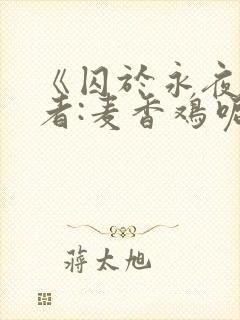 《囚於永夜
者:麦香鸡呢
蒋太旭